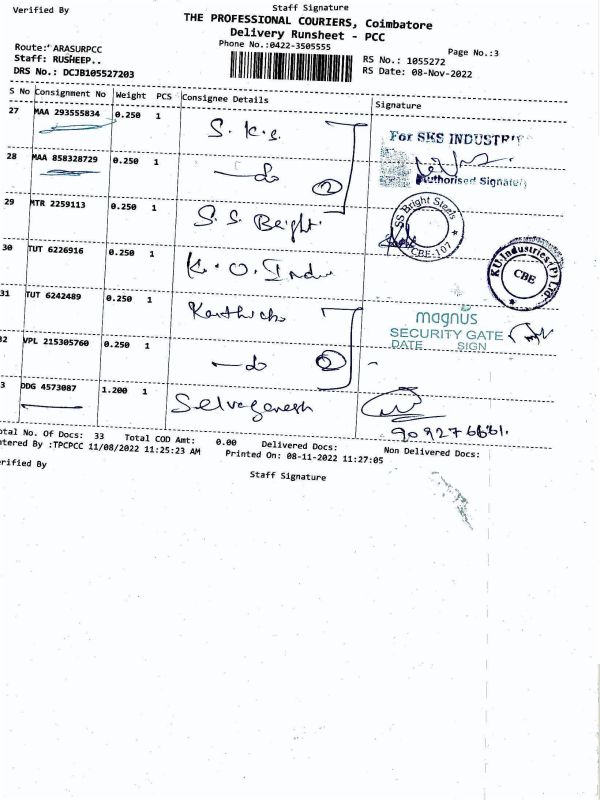 Verified By
Staff Signature
THE PROFESSIONAL COURIERS, Coimbatore
Delivery Runsheet - PCC
Phone No.:0422-3505555
Page No.:3
Route: ARASURPCC
Staff: RUSHEEP..
DRS No.: DCJB105527203
RS No.: 1055272
RS Date: 08-Nov-2022
S No Consignment No Weight PCS Consignee Details Signature
27 MAA 293555834 0.250 1 S. K. S.
For SKS INDUSTRI
28 MAA 858328729 0.250 1 do 2
Authorised Signatory
29 MTR 2259113 0.250 1 S. S. Beight.
SS Bright Steels
CBE-107
30 TUT 6226916 0.250 1 K. O. Indu
K.U.Industries (P) Ltd.
CBE
31 TUT 6242489 0.250 1 Karthick
magnus
SECURITY GATE
DATE SIGN
32 VPL 215305760 0.250 1 do 2
3 DDG 4573087 1.200 1 Selvaganesh
otal No. Of Docs: 33 Total COD Amt: 0.00 Delivered Docs: Non Delivered Docs:
ntered By :TPCPCC 11/08/2022 11:25:23 AM Printed On: 08-11-2022 11:27:05
erified By
Staff Signature